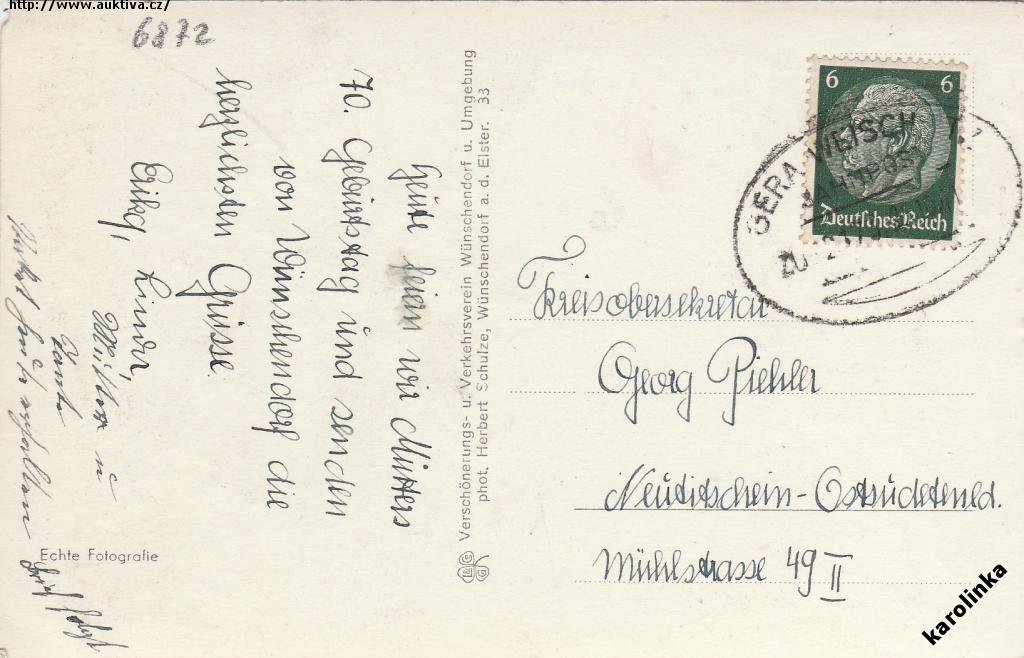 http://www.auktiva.cz/
6872
Heute feiern wir Mutters
70. Geburtstag und senden
von Wünschendorf die
herzlichsten Grüsse
Erika, Linda,
Mutter u
Tante
Brief folgt
Echte Fotografie
Verschönerungs- u. Verkehrsverein Wünschendorf u. Umgebung
phot. Herbert Schulze, Wünschendorf a. d. Elster. 33
6 6
Deutsches Reich
GERA
BAHNPOST
ZUG
Kreisobersekretär
Georg Piehler
Neutitschein-Ostsudetenld.
Mühlstrasse 49 II
karolinka